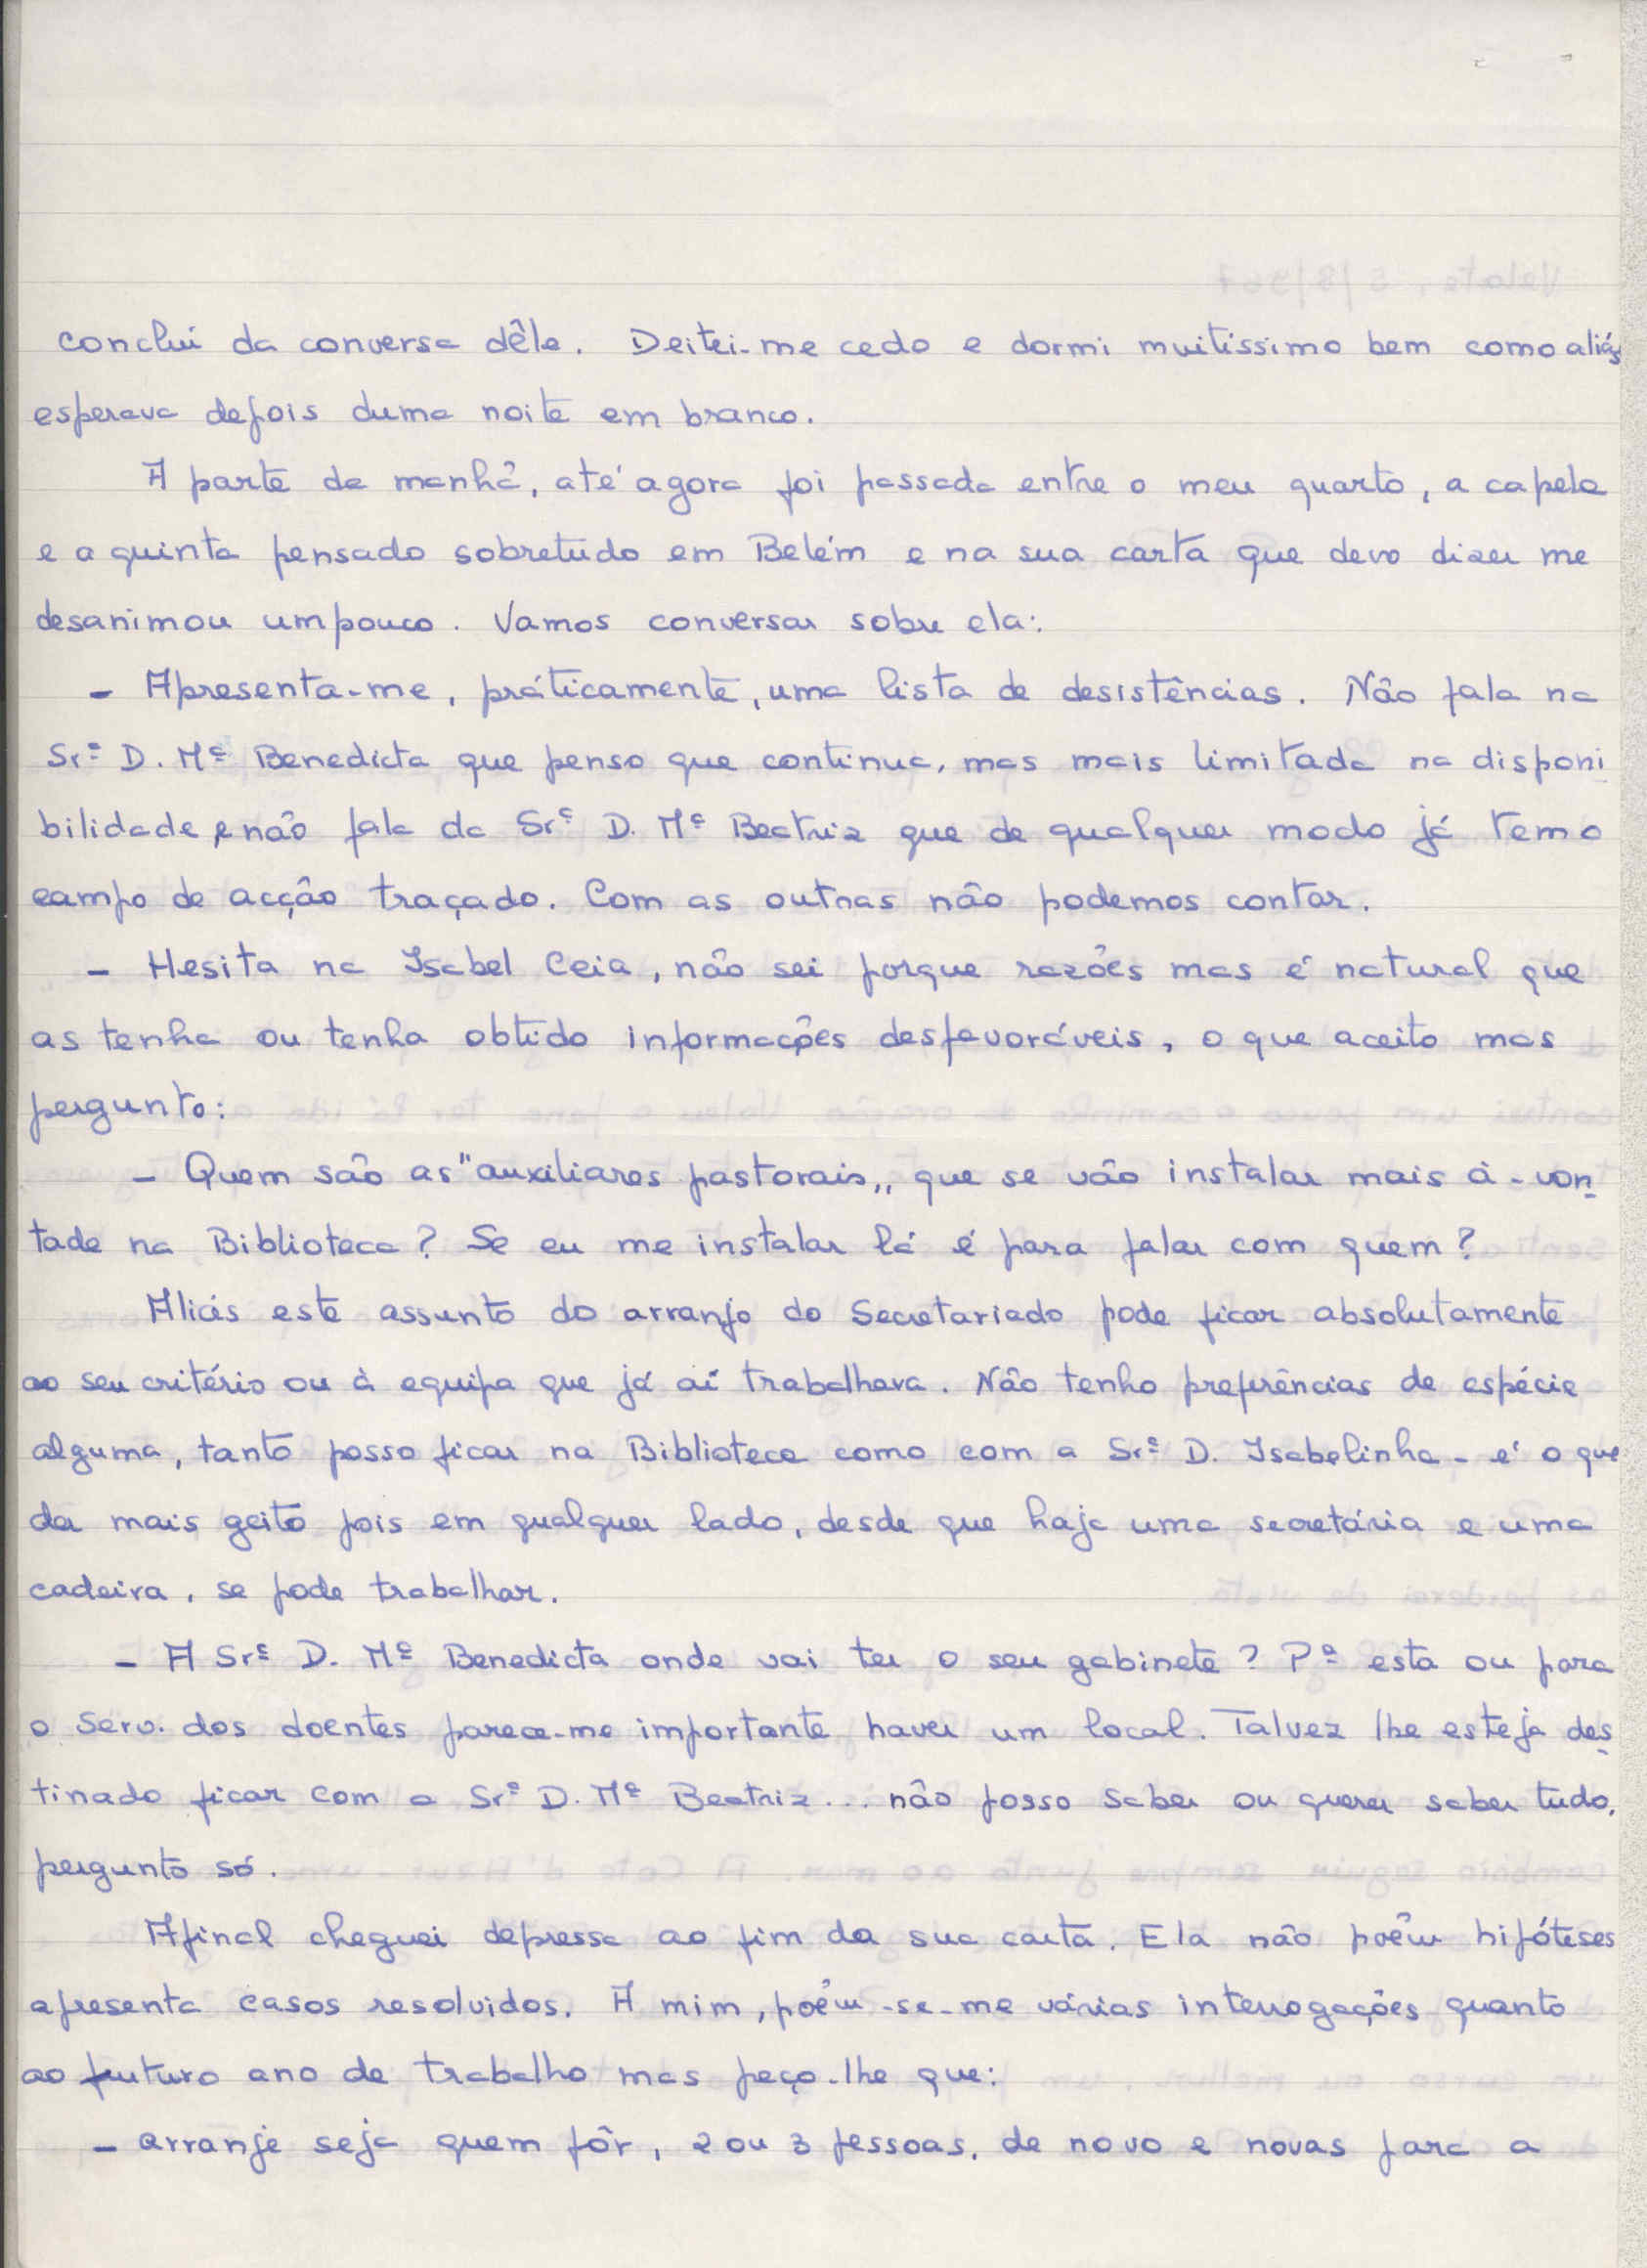 conclui da conversa dêle. Deitei-me cedo e dormi muitíssimo bem como aliás
esperava depois duma noite em branco.
A parte da manhã, até agora foi passada entre o meu quarto, a capela
e a quinta pensado sobretudo em Belém e na sua carta que devo dizer me
desanimou um pouco. Vamos conversar sobre ela:
- Apresenta-me, pràticamente, uma lista de desistências. Não fala na
Srª D. Mª Benedicta que penso que continua, mas mais limitada na disponi
bilidade, e não fala da Srª D. Mª Beatriz que de qualquer modo já tem o
campo de acção traçado. Com as outras não podemos contar.
- Hesita na Isabel Ceia, não sei porque razões mas é natural que
as tenha ou tenha obtido informações desfavoráveis, o que aceito mas
pergunto:
- Quem são as "auxiliares pastorais„ que se vão instalar mais à-von
tade na Biblioteca? Se eu me instalar lá é para falar com quem?
Aliás este assunto do arranjo do Secretariado pode ficar absolutamente
ao seu critério ou à equipa que já aí trabalhava. Não tenho preferências de espécie
alguma, tanto posso ficar na Biblioteca como com a Srª D. Isabelinha - é o que
der mais geito pois em qualquer lado, desde que haja uma secretária e uma
cadeira, se pode trabalhar.
- A Srª D. Mª Benedicta onde vai ter o seu gabinete? Pª esta ou para
o Serv. dos doentes parece-me importante haver um local. Talvez lhe esteja des
tinado ficar com a Srª D. Mª Beatriz... não posso saber ou querer saber tudo,
pergunto só.
Afinal cheguei depressa ao fim da sua carta. Ela não poêm hipóteses
apresenta casos resolvidos. A mim, poêm-se-me várias interrogações quanto
ao futuro ano de trabalho mas peço-lhe que:
- arranje seja quem fôr, 2 ou 3 pessoas, de novo e novas para a